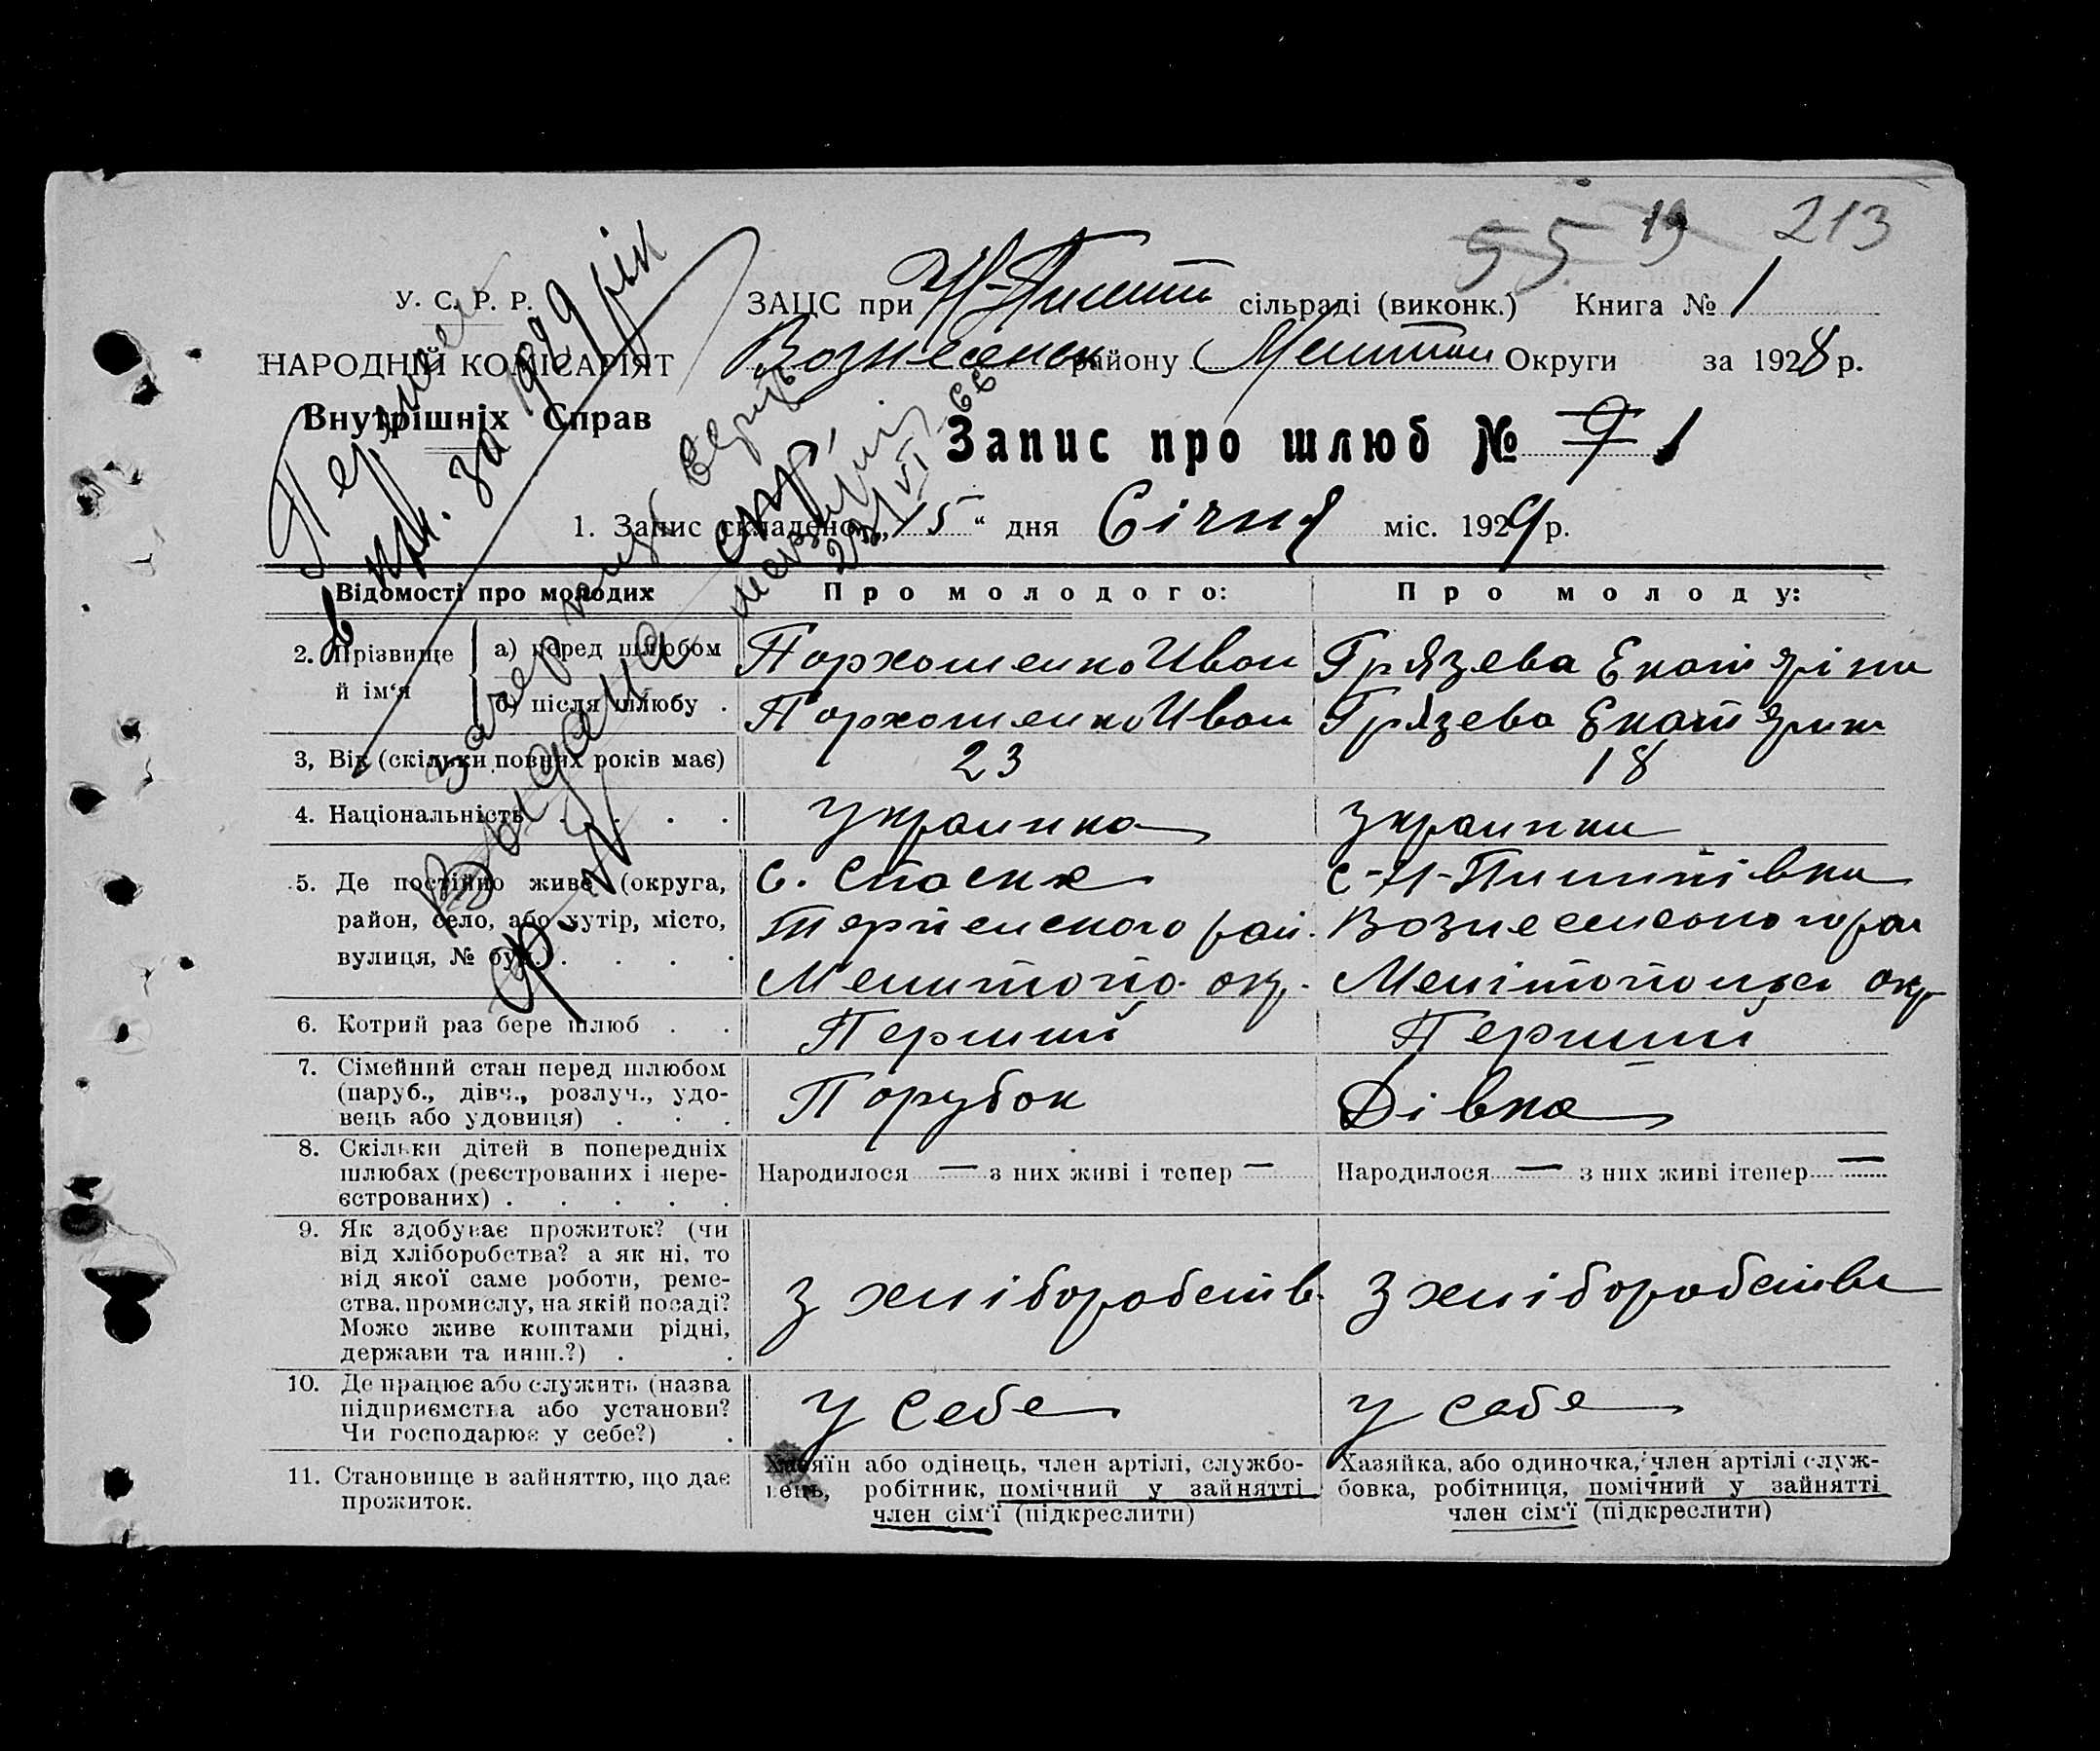 55 19 213
У. С. Р. Р.
ЗАЦС при сільраді (виконк.) Книга № 1
НАРОДНІЙ КОМІСАРІЯТ
Вознесенск району Мелитоп Округи за 1928 р.
Внутрішніх Справ
Запис про шлюб № 9 1
1. Запис складено „15“ дня Січня міс. 1929 р.
за 1929 рік
Відомості про молодих
Про молодого:
Про молоду:
2. Прізвище й ім'я
а) перед шлюбом
Пархоменко Иван
Грязева Екатяріна
б) після шлюбу .
Пархоменко Иван
Грязева Екатярина
3, Вік (скільки повних років має)
23
18
4. Національність . . . .
Украинка
Украинка
5. Де постійно живе (округа,
район, село, або хутір, місто,
вулиця, № буд.) . . . .
с. Спаске
Терпенского рай.
Мелитопо. окр.
6. Котрий раз бере шлюб . .
Перший
Перший
7. Сімейний стан перед шлюбом
(паруб., дівч., розлуч., удо-
вець або удовиця) . . .
Парубок
Дівка
8. Скільки дітей в попередніх
шлюбах (реєстрованих і нере-
єстрованих) . . . . .
Народилося — з них живі і тепер —
Народилося — з них живі ітепер —
9. Як здобуває прожиток? (чи
від хліборобства? а як ні, то
від якої саме роботи, реме-
ства, промислу, на якій посаді?
Може живе коштами рідні,
держави та инш.?) . .
З хліборобств.
З хліборобства
10. Де працює або служить (назва
підприємства або установи?
Чи господарює у себе?) .
У себе
У себе
11. Становище в зайняттю, що дає
прожиток.
Хазяїн або одінець, член артілі, службо-
вець, робітник, помічний у зайнятті
член сім'ї (підкреслити)
Хазяйка, або одиночка, член артілі служ-
бовка, робітниця, помічний у зайнятті
член сім'ї (підкреслити)